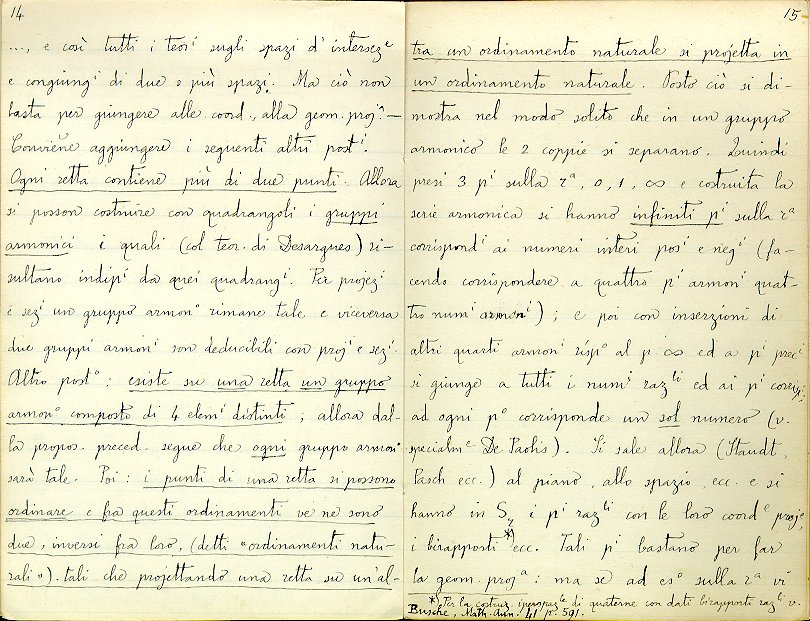 14
..., e così tutti i teorⁱ sugli spazi d'intersezᵉ
e congiungⁱ di due o più spazi. Ma ciò non
basta per giungere alle coord., alla geom. projᵃ. —
Conviene aggiungere i seguenti altri postⁱ.
Ogni retta contiene più di due punti. Allora
si posson costruire con quadrangoli i gruppi
armonici i quali (col teor. di Desargues) ri-
sultano indipⁱ da quei quadrangⁱ. Per projezⁱ
e sezⁱ un gruppo armonᵒ rimane tale e viceversa
due gruppi armonⁱ son deducibili con projⁱ e sezⁱ.
Altro postᵒ: esiste su una retta un gruppo
armonᵒ composto di 4 elemⁱ distinti; allora dal-
la propos. preced. segue che ogni gruppo armonᵒ
sarà tale. Poi: i punti di una retta si possono
ordinare e fra questi ordinamenti ve ne sono
due, inversi fra loro, (detti "ordinamenti natu-
rali"). tali che projettando una retta su un'al-
15
tra un ordinamento naturale si projetta in
un ordinamento naturale. Posto ciò si di-
mostra nel modo solito che in un gruppo
armonico le 2 coppie si separano. Quindi
presi 3 pⁱ sulla rᵃ, 0, 1, ∞ e costruita la
serie armonica si hanno infiniti pⁱ sulla rᵃ
corrispondⁱ ai numeri interi posⁱ e negⁱ (fa-
cendo corrispondere a quattro pⁱ armonⁱ quat-
tro numⁱ armonⁱ); e poi con inserzioni di
altri quarti armonⁱ rispᵒ al p. ∞ ed a pⁱ precⁱ
si giunge a tutti i numⁱ razˡⁱ ed ai pⁱ corrispⁱ;
ad ogni pᵒ corrisponde un sol numero (v.
specialmᵉ De Paolis). Si sale allora (Staudt,
Pasch ecc.) al piano, allo spazio, ecc. e si
hanno in S₂ i pⁱ razˡⁱ con le loro coordᵉ proje,
i birapporti *) ecc. Tali pⁱ bastano per far
la geom. projᵃ: ma se ad esᵒ sulla rᵃ vi
*) Per la costruz. di quaterne con dati birapporti razˡⁱ v.
Busche, Math. Ann. 41 p. 591.